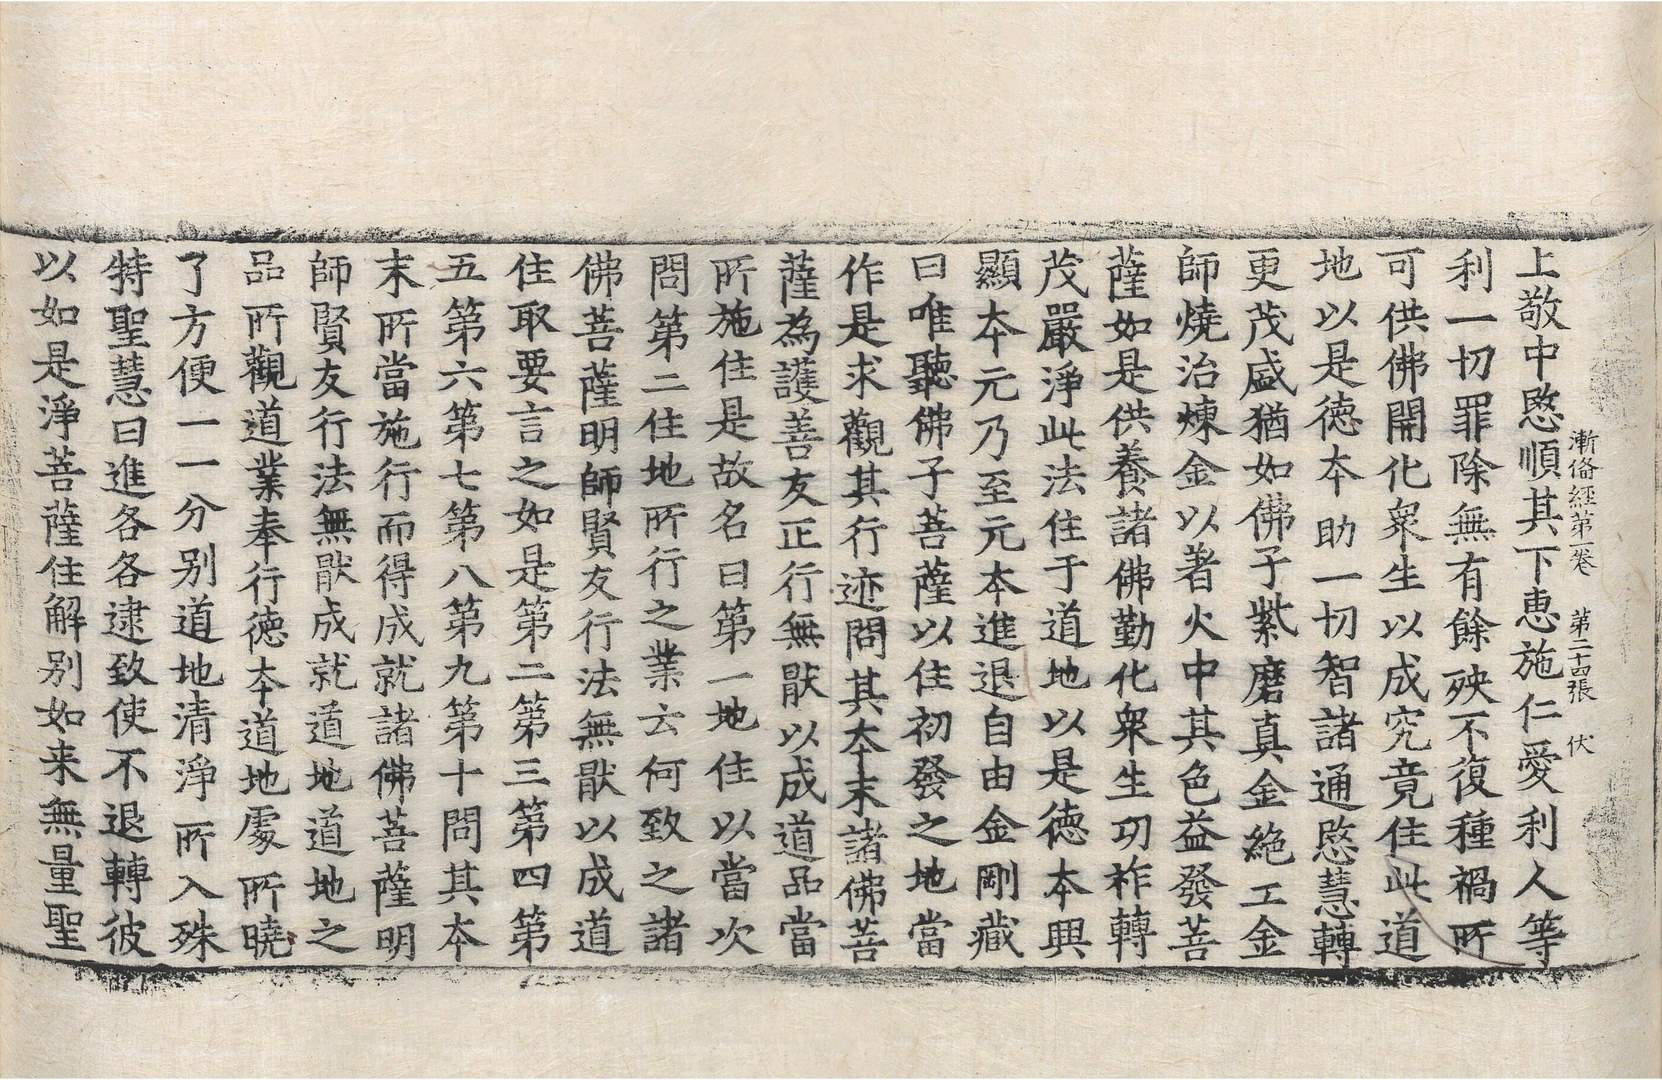 漸俻經第一卷　第二十四張　伏
上敬中愍順其下恵施仁愛利人等
利一切罪除無有餘殃不復種禍所
可供佛開化衆生以成究竟住此道
地以是徳夲助一切智諸通愍慧轉
更茂盛猶如佛子紫磨真金絶工金
師燒治煉金以著火中其色益發菩
薩如是供養諸佛勤化衆生功祚轉
茂嚴淨此法住于道地以是徳夲興
顯夲元乃至元夲進退自由金剛藏
曰唯聽佛子菩薩以住初發之地當
作是求觀其行迹問其夲末諸佛菩
薩為護善友正行無猒以成道品當
所施住是故名曰第一地住以當次
問第二住地所行之業云何致之諸
佛菩薩明師賢友行法無猒以成道
住取要言之如是第二第三第四第
五第六第七第八第九第十問其夲
末所當施行而得成就諸佛菩薩明
師賢友行法無猒成就道地道地之
品所觀道業奉行徳夲道地䖏所曉
了方便一一分别道地清淨所入殊
特聖慧曰進各各逮致使不退轉彼
以如是淨菩薩住解别如来無量聖